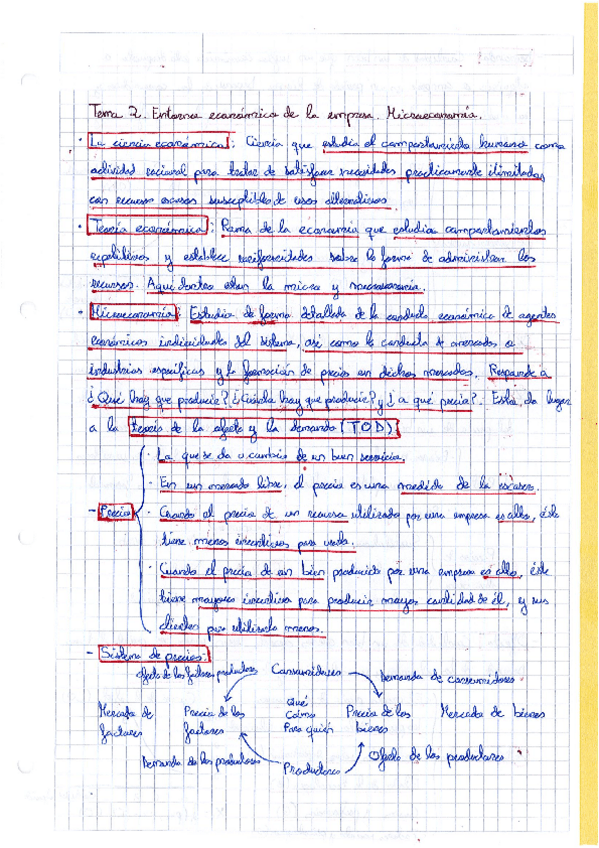 Tema 2. Entorno económico de la empresa. Microeconomía.
· La ciencia económica: Ciencia que estudia el comportamiento humano como
actividad racional para tratar de satisfacer necesidades prácticamente ilimitadas
con recursos escasos susceptibles de usos alternativos.
· Teoría económica: Rama de la economía que estudia comportamientos
repetitivos y establece uniformidades sobre la forma de administrar los
recursos. Aquí dentro están la micro y macroeconomía.
· Microeconomía: Estudia de forma detallada de la conducta económica de agentes
económicos individuales del sistema, así como la conducta de mercados o
industrias específicas y la formación de precios en dichos mercados. Responde a
¿Qué hay que producir? ¿Cuánto hay que producir? y ¿a qué precio?. Esto da lugar
a la teoría de la oferta y la demanda (TOD).
· Lo que se da a cambio de un bien o servicio.
· En un mercado libre, el precio es una medida de la escasez.
- Precio · Cuando el precio de un recurso utilizado por una empresa es alto, éste
tiene menos incentivos para usarlo.
· Cuando el precio de un bien producido por una empresa es alto, éste
tiene mayores incentivos para producir mayor cantidad de él, y sus
clientes para utilizarlo menos.
- Sistema de precios:
Oferta de los factores productores Consumidores Demanda de consumidores
Mercado de factores Precio de los factores Qué Cómo Para quién Precio de los bienes Mercado de bienes
Demanda de los productores Productores Oferta de los productores